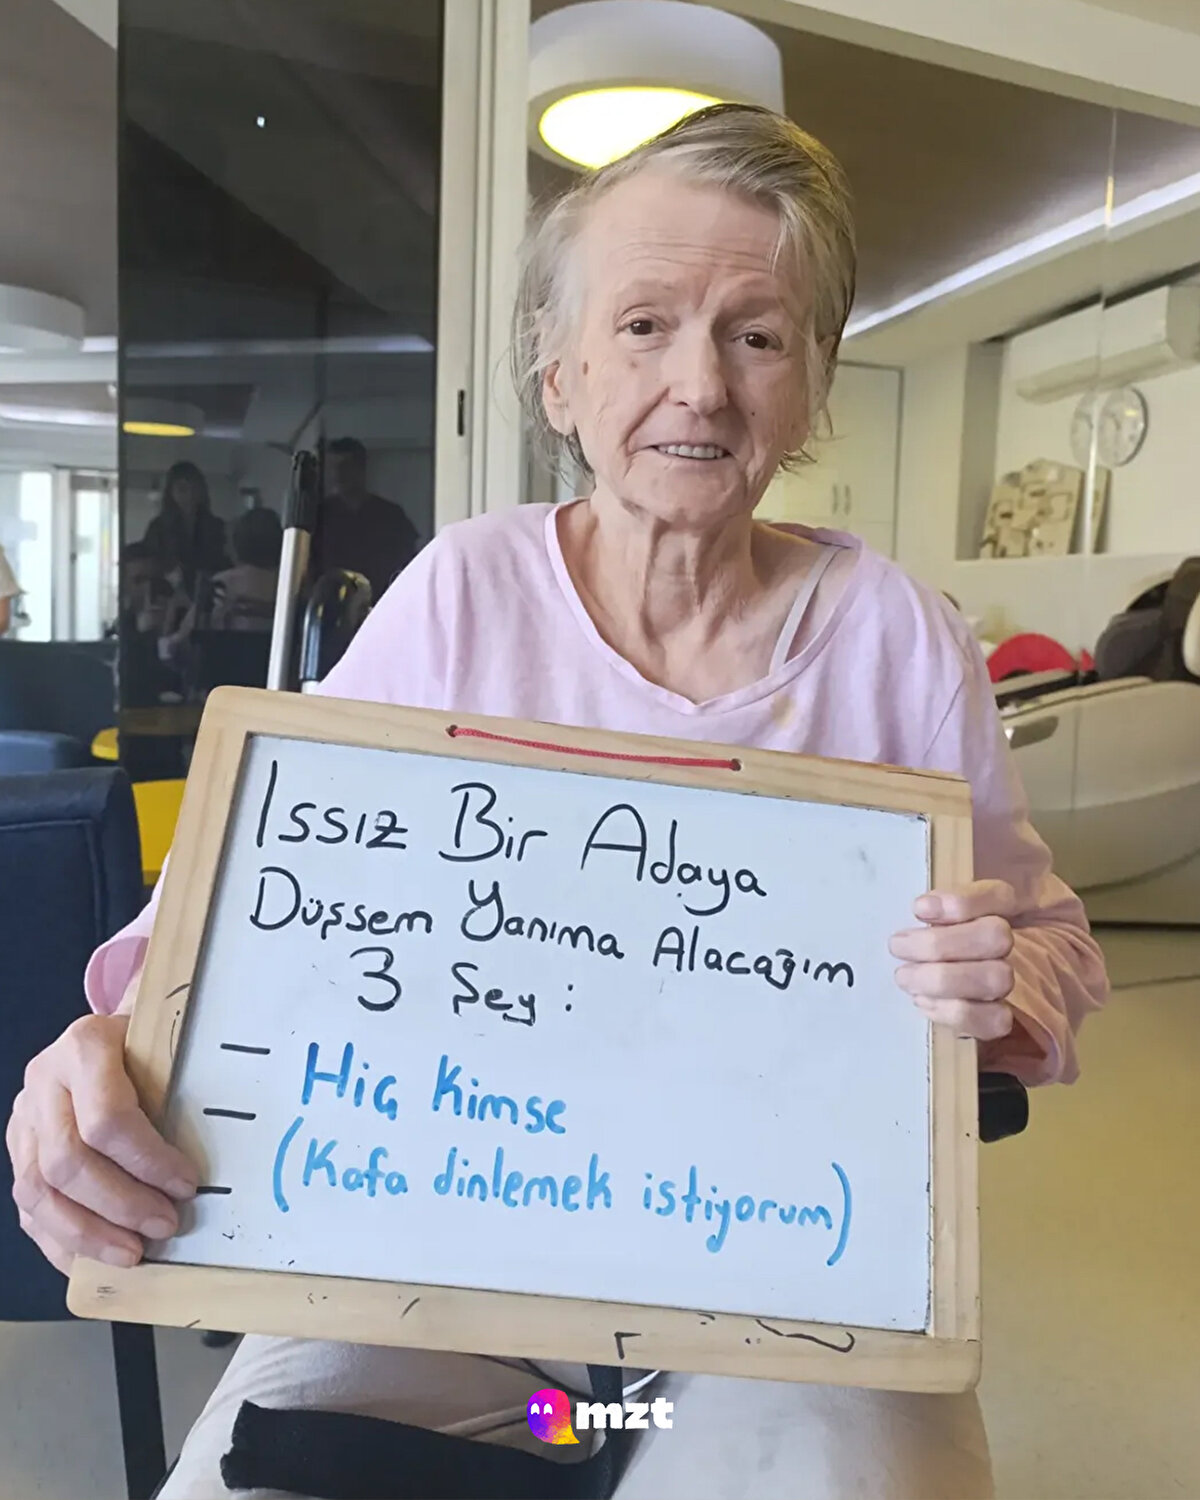 Issız Bir Adaya
Düşsem Yanıma Alacağım
3 Şey :
- Hiç Kimse
-
- (Kafa dinlemek istiyorum)
mzt